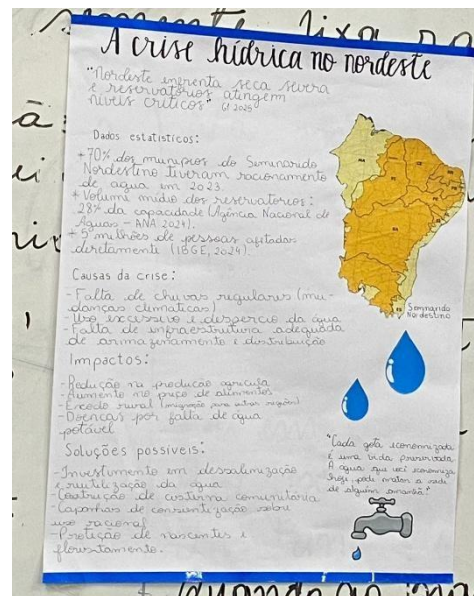 A crise hídrica no nordeste
"Nordeste enfrenta seca severa
e reservatórios atingem
níveis críticos" G1 2025
Dados estatísticos:
+70% dos municípios do Semiárido
Nordestino tiveram racionamento
de agua em 2023.
+Volume médio dos reservatórios:
28% da capacidade (Agência Nacional de
Águas - ANA 2024).
+5 milhões de pessoas afetadas
diretamente (IBGE, 2024).
Causas da crise:
-Falta de chuvas regulares (mu-
danças climáticas)
-Uso excessivo e desperdício da água
-Falta de infraestrutura adequada
de armazenamento e distribuição
Impactos:
-Redução na produção agrícola
-Aumento no preço de alimentos
-Êxodo rural (migração para outras regiões)
-Doenças por falta de água
potável
Soluções possíveis:
-Investimento em dessalinização
e reutilização da água
-Construção de cisterna comunitária
-Campanhas de conscientização sobre
uso racional
-Proteção de nascentes e
florestamento.
Semiárido
Nordestino
"Cada gota economizada
é uma vida preservada.
A água que você economiza
hoje pode matar a sede
de alguém amanhã."
quando ao